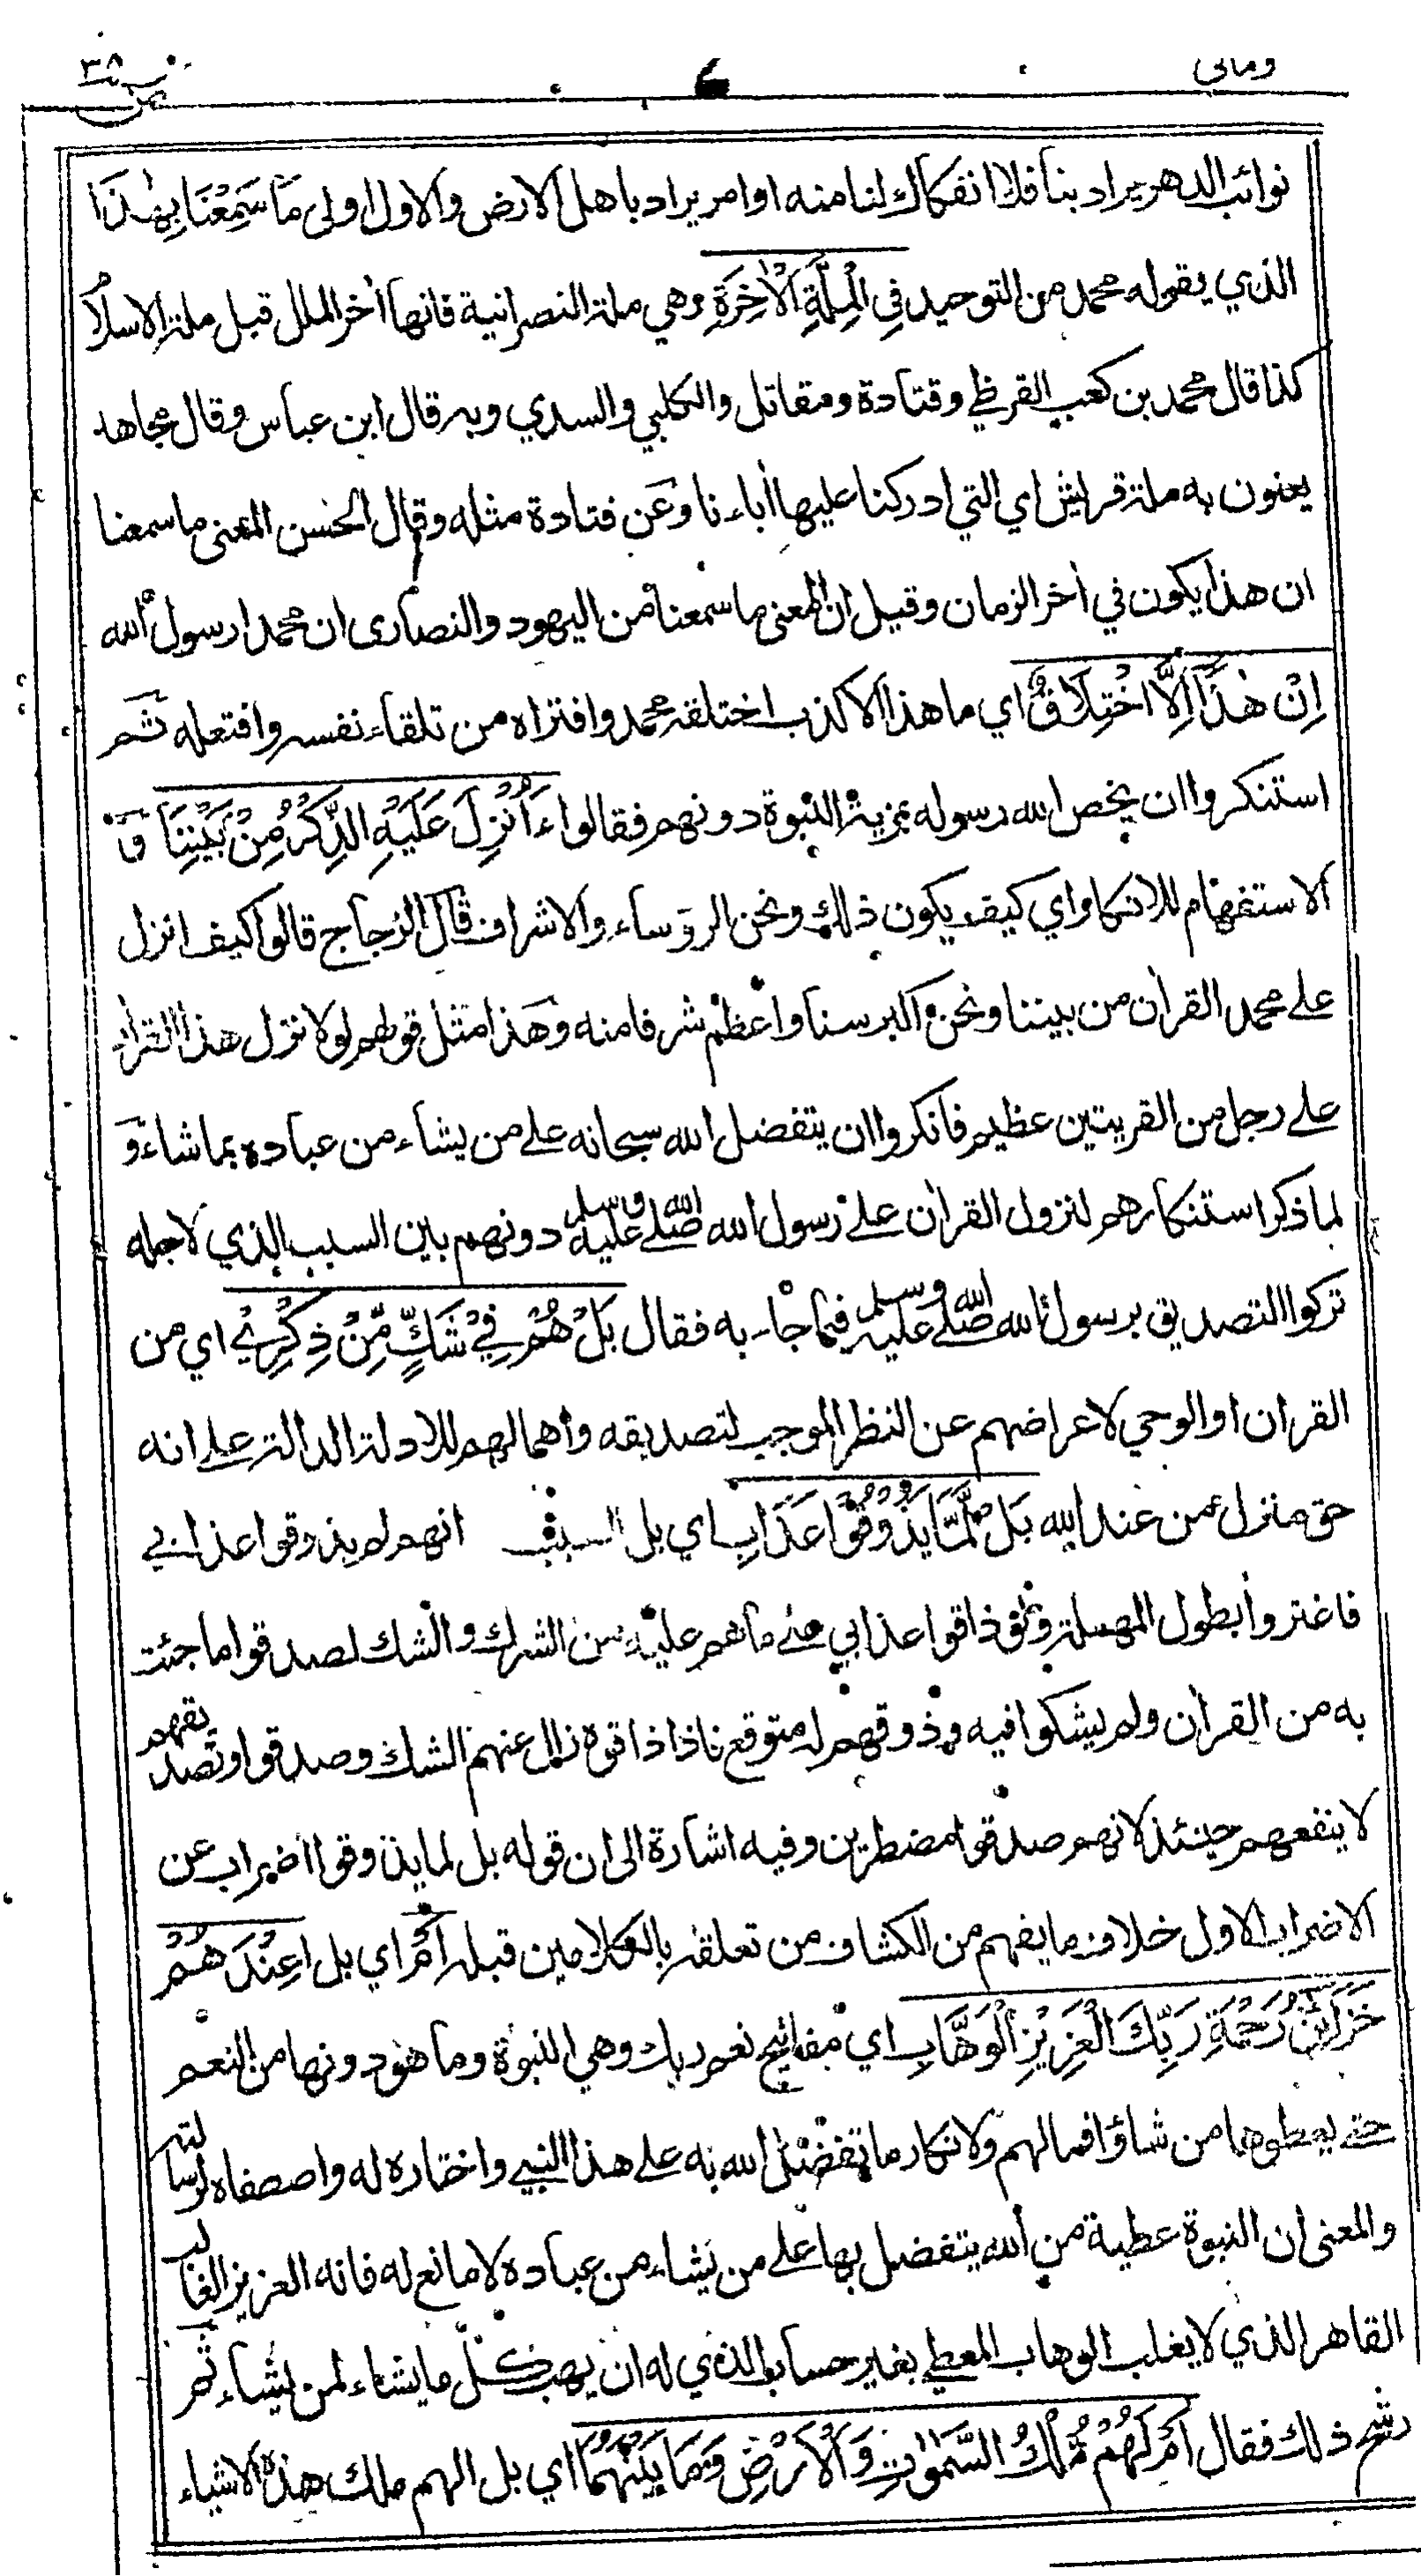 ومالي ٦ ص ٣٨
نوائب الدهر يراد بنا فلا انفكاك لنا منه او امر يراد باهل الارض والاول اولى مَا سَمِعْنَا بِهٰذَا
الذي يقوله محمد من التوحيد فِي الْمِلَّةِ الْاٰخِرَةِ وهي ملة النصرانية فانها أخر الملل قبل ملة الاسلام
كذا قال محمد بن كعب القرظي وقتادة ومقاتل والكلبي والسدي وبه قال ابن عباس وقال مجاهد
يعنون به ملة قريش اي التي ادركنا عليها أباءنا وعن قتادة مثله وقال الحسن المعنى ما سمعنا
ان هذا يكون في أخر الزمان وقيل ان المعنى ما سمعنا من اليهود والنصارى ان محمدا رسول الله
اِنْ هٰذَا اِلَّا اخْتِلَاقٌ اي ما هذا الا كذب اختلقه محمد وافتراه من تلقاء نفسه وافتعله ثم
استنكروا ان يخص الله رسوله بمزية النبوة دونهم فقالوا ءَاُنْزِلَ عَلَيْهِ الذِّكْرُ مِنْ بَيْنِنَا و
الاستفهام للانكار اي كيف يكون ذلك ونحن الرؤساء والاشراف قال الزجاج قالوا كيف انزل
على محمد القرأن من بيننا ونحن اكبر سنا واعظم شرفا منه وهذا مثل قولهم لولا نزل هذا القرأن
على رجل من القريتين عظيم فانكروا ان يتفضل الله سبحانه على من يشاء من عباده بما شاء و
لما ذكر استنكارهم لنزول القرأن على رسول الله صلى الله عليه وسلم دونهم بين السبب الذي لاجله
تركوا التصديق برسول الله صلى الله عليه وسلم فيما جاء به فقال بَلْ هُمْ فِيْ شَكٍّ مِّنْ ذِكْرِيْ اي من
القرأن او الوحي لاعراضهم عن النظر الموجب لتصديقه واهمالهم للادلة الدالة على انه
حق منزل من عند الله بَلْ لَّمَّا يَذُوْقُوْا عَذَابِ اي بل السبب انهم لم يذوقوا عذابي
فاغتروا بطول المهلة ولو ذاقوا عذابي على ما هم عليه من الشرك والشك لصدقوا ما جئت
به من القرأن ولم يشكوا فيه وذوقهم له متوقع فاذا ذاقوه زال عنهم الشك وصدقوا وتصديقهم
لا ينفعهم حينئذ لانهم صدقوا مضطرين وفيه اشارة الى ان قوله بل لما يذوقوا اضراب عن
الاضراب الاول خلاف ما يفهم من الكشاف من تعلقه بالكلامين قبله اَمْ اي بل ا عِنْدَهُمْ
خَزَائِنُ رَحْمَةِ رَبِّكَ الْعَزِيْزِ الْوَهَّابِ اي مفاتيح نعم ربك وهي النبوة وما هو دونها من النعم
حتى يعطوها من شاؤا فما لهم ولانكار ما تفضل الله به على هذا النبي واختاره له واصطفاه لرسالته
والمعنى ان النبوة عطية من الله يتفضل بها على من يشاء من عباده لا مانع له فانه العزيز الغالب
القاهر الذي لا يغلب الوهاب المعطي بغير حساب الذي له ان يهب كل ما يشاء لمن يشاء ثم
رشح ذلك فقال اَمْ لَهُمْ مُّلْكُ السَّمٰوٰتِ وَالْاَرْضِ وَمَا بَيْنَهُمَا اي بل الهم ملك هذه الاشياء